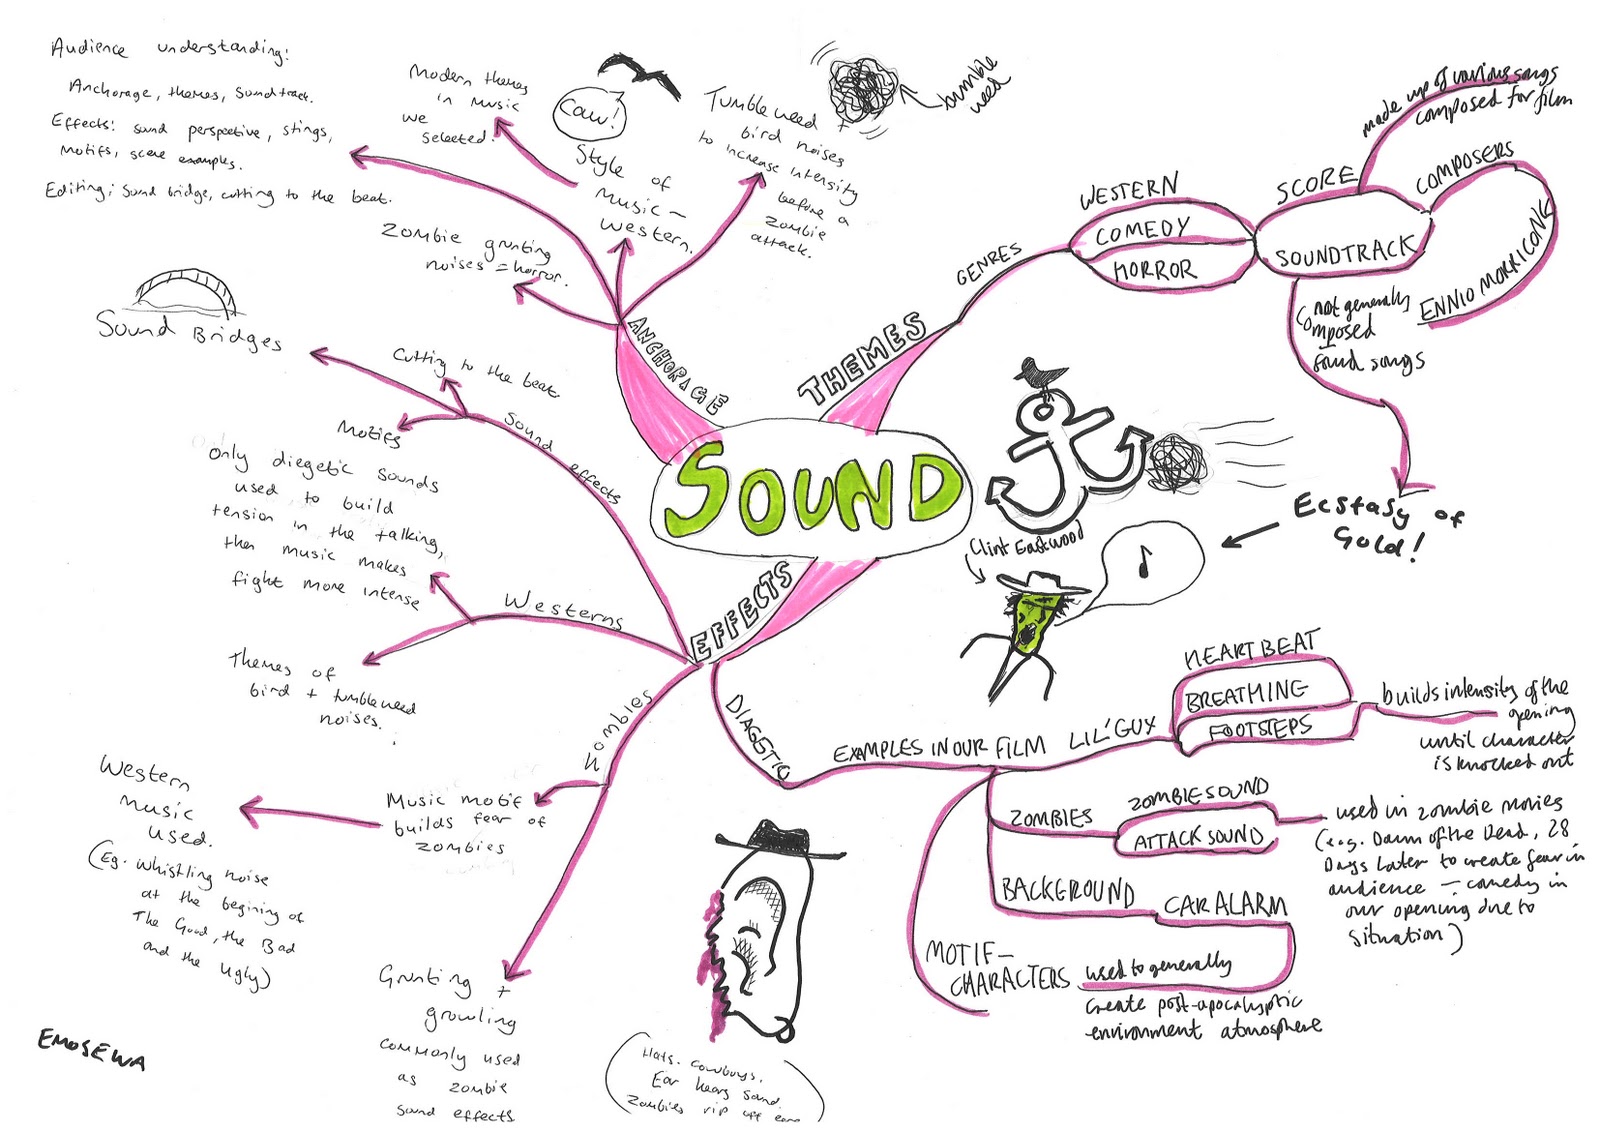 Audience understanding:
Anchorage, themes, soundtrack.
Effects: sound perspective, stings,
motifs, scene examples.
Editing; Sound bridge, cutting to the beat.
Modern themes
in music
we
selected.
Caw!
Style of
Music -
Western.
Tumbleweed +
bird noises
to increase intensity
before a
zombie
attack.
tumble
weed
Zombie grunting
noises = horror.
ANCHORAGE
THEMES
GENRES
WESTERN
COMEDY
HORROR
SCORE
made up of various songs
composed for film
SOUNDTRACK
COMPOSERS
ENNIO MORRICONE
not generally
composed
found songs
Ecstasy of
Gold!
SOUND
Clint Eastwood
Sound Bridges
Cutting to the beat
Motifs
Sound effects
only diegetic sounds
used to build
tension in the talking,
then music makes
fight more intense
Westerns
Themes of
bird + tumbleweed
noises.
EFFECTS
Zombies
Music motif
builds fear of
zombies
Western
music
used.
(Eg. Whistling noise
at the begining of
The Good, the Bad
and the Ugly)
Grunting
+
growling
commonly used
as zombie
sound effects
DIAGETIC
EXAMPLES IN OUR FILM
LIL' GUY
HEARTBEAT
BREATHING
FOOTSTEPS
builds intensity of the
opening
until character
is knocked out
ZOMBIES
ZOMBIE SOUND
ATTACK SOUND
used in zombie movies
(e.g. Dawn of the Dead, 28
Days Later to create fear in
audience - comedy in
our opening due to
situation)
BACKGROUND
CAR ALARM
used to generally
create post-apocalyptic
environment atmosphere
MOTIF-
CHARACTERS
(Hats. cowboys.
Ear hears sound.
Zombies rip off ears
EMOSEWA